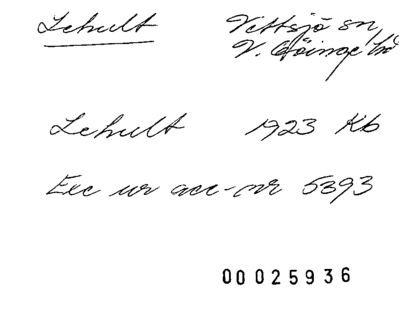 Lehult Vittsjö sn,
V. Göinge hd
Lehult 1923 Kb
Exc ur acc-nr 5393
00025936